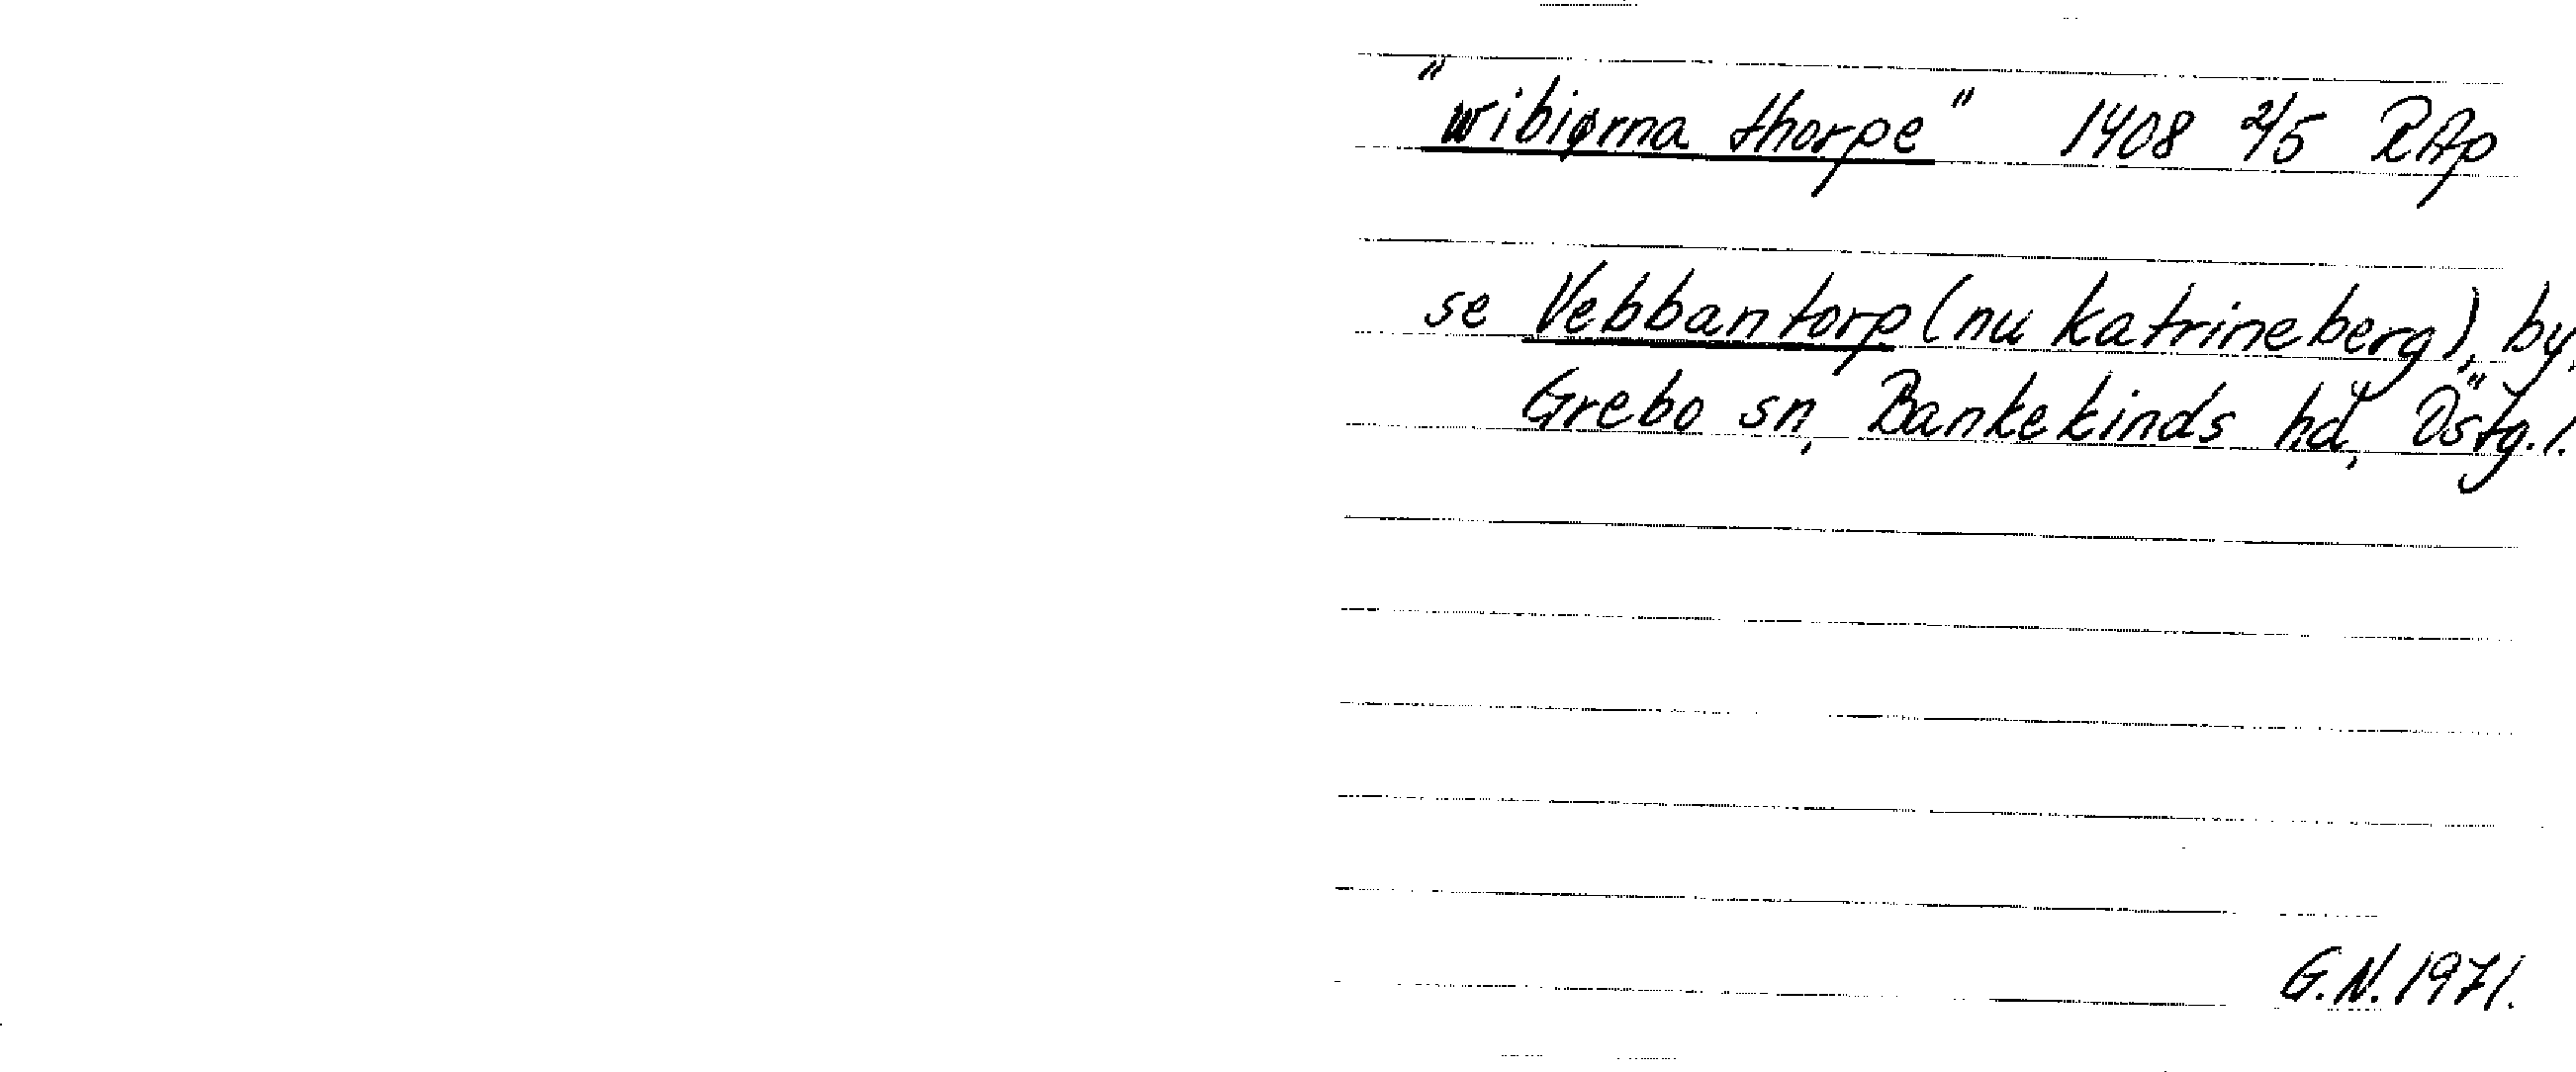 "wibiørna thorpe" 1408 2/5 RAp
se Vebbantorp (nu Katrineberg), by,
Grebo sn, Bankekinds hd, Östg.l.
G.N. 1971.